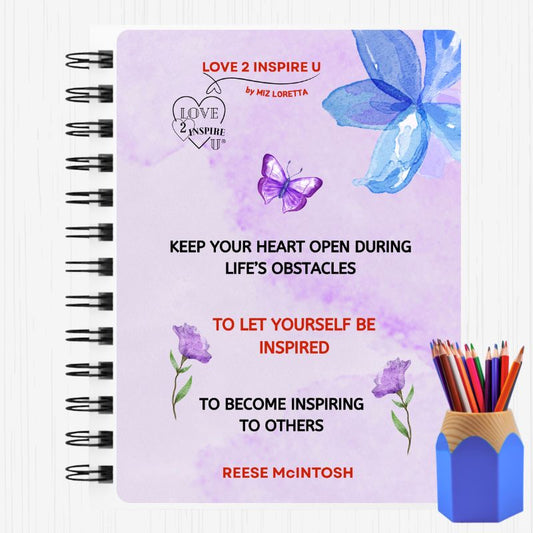 LOVE 2 INSPIRE U
by MIZ LORETTA
LOVE
2 INSPIRE
U®
KEEP YOUR HEART OPEN DURING
LIFE'S OBSTACLES
TO LET YOURSELF BE
INSPIRED
TO BECOME INSPIRING
TO OTHERS
REESE McINTOSH